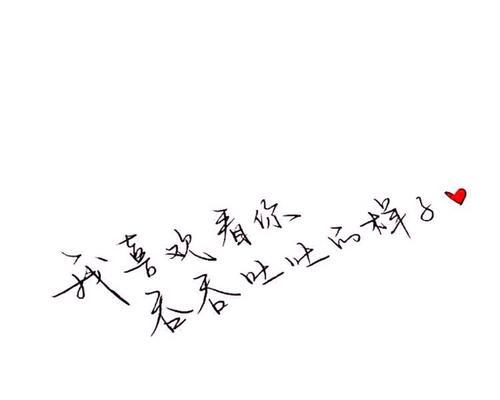 我喜欢看你
吞吞吐吐的样子